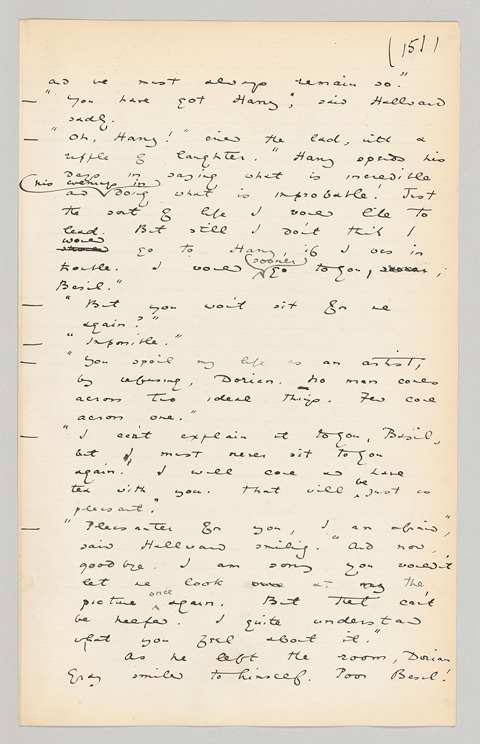 (151)
as we must always remain so."
"You have got Harry", said Hallward
sadly.
"Oh, Harry!" cried the lad, with a
ripple of laughter. "Harry spends his
days in saying what is incredible
his evenings in
and doing what is improbable. Just
the sort of life I would like to
lead. But still I don't think I
would
go to Harry, if I was in
trouble. I would sooner go to you,
Basil."
"But you won't sit for me
again?"
"Impossible."
"You spoil my life as an artist,
by refusing, Dorian. No man comes
across two ideal things. Few come
across one."
"I can't explain it to you, Basil,
but I must never sit to you
again. I will come and have
tea with you. That will be just as
pleasant."
"Pleasanter for you, I am afraid",
said Hallward smiling. "And now,
goodbye. I am sorry you wouldn't
let me look at the
picture once again. But that can't
be helped. I quite understand
what you feel about it."
As he left the room, Dorian
Gray smiled to himself. Poor Basil!